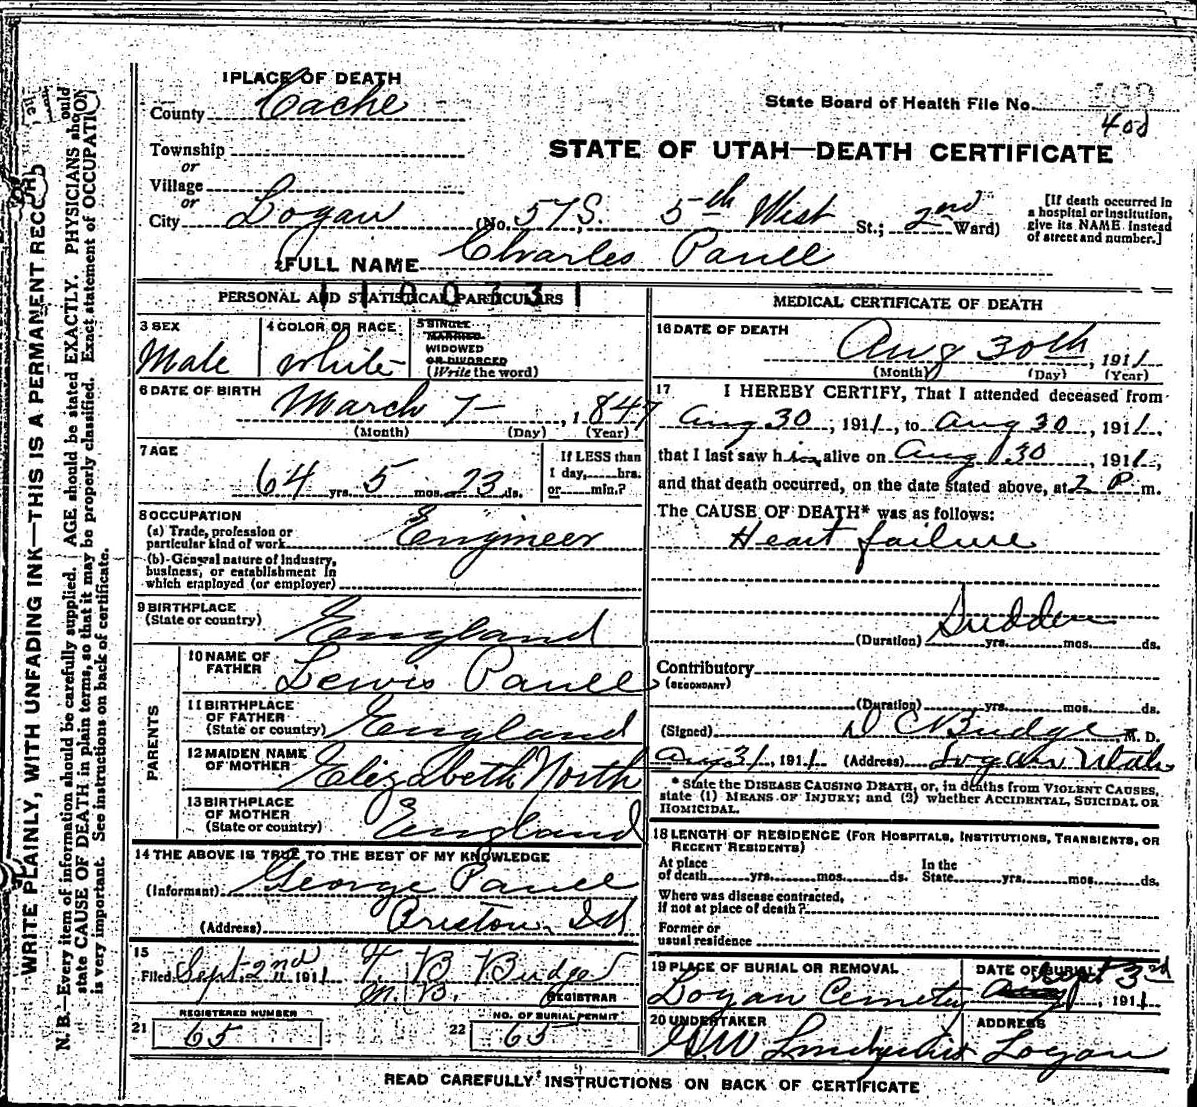 1 PLACE OF DEATH
County Cache
State Board of Health File No. 169
408
Township
or
Village
or
City Logan (No. 57 S. 5th West St.; 2nd Ward)
STATE OF UTAH—DEATH CERTIFICATE
[If death occurred in a hospital or institution, give its NAME instead of street and number.]
2 FULL NAME Charles Panell
PERSONAL AND STATISTICAL PARTICULARS
3 SEX
Male
4 COLOR OR RACE
White
5 SINGLE
MARRIED
WIDOWED
OR DIVORCED
(Write the word)
6 DATE OF BIRTH
March 7 , 1847
(Month) (Day) (Year)
7 AGE
64 yrs. 5 mos. 23 ds.
If LESS than
1 day, hrs.
or min.?
8 OCCUPATION
(a) Trade, profession or
particular kind of work Engineer
(b) General nature of industry,
business, or establishment in
which employed (or employer)
9 BIRTHPLACE
(State or country) England
PARENTS
10 NAME OF
FATHER Lewis Panell
11 BIRTHPLACE
OF FATHER
(State or country) England
12 MAIDEN NAME
OF MOTHER Elizabeth North
13 BIRTHPLACE
OF MOTHER
(State or country) England
14 THE ABOVE IS TRUE TO THE BEST OF MY KNOWLEDGE
(Informant) George Panell
(Address) Preston, Id
15
Filed Sept 2nd 1911 T. B. Budge
M. D. REGISTRAR
21 REGISTERED NUMBER
65
22 NO. OF BURIAL PERMIT
65
MEDICAL CERTIFICATE OF DEATH
16 DATE OF DEATH
Aug 30th , 1911
(Month) (Day) (Year)
17 I HEREBY CERTIFY, That I attended deceased from
Aug 30 , 1911, to Aug 30 , 1911,
that I last saw him alive on Aug 30 , 1911,
and that death occurred, on the date stated above, at 2 P m.
The CAUSE OF DEATH* was as follows:
Heart failure
Sudden
(Duration) yrs. mos. ds.
Contributory
(SECONDARY)
(Duration) yrs. mos. ds.
(Signed) D C Budge M. D.
Aug 31, 1911 (Address) Logan Utah
* State the DISEASE CAUSING DEATH, or, in deaths from VIOLENT CAUSES,
state (1) MEANS OF INJURY; and (2) whether ACCIDENTAL, SUICIDAL OR
HOMICIDAL.
18 LENGTH OF RESIDENCE (FOR HOSPITALS, INSTITUTIONS, TRANSIENTS, OR
RECENT RESIDENTS)
At place
of death yrs. mos. ds.
In the
State yrs. mos. ds.
Where was disease contracted,
if not at place of death?
Former or
usual residence
19 PLACE OF BURIAL OR REMOVAL
Logan Cemetery
DATE OF BURIAL
Sept 3rd
Aug , 1911
20 UNDERTAKER
ADDRESS
Logan
READ CAREFULLY INSTRUCTIONS ON BACK OF CERTIFICATE
WRITE PLAINLY, WITH UNFADING INK—THIS IS A PERMANENT RECORD
N. B.—Every item of information should be carefully supplied. AGE should be stated EXACTLY. PHYSICIANS should
state CAUSE OF DEATH in plain terms, so that it may be properly classified. Exact statement of OCCUPATION
is very important. See instructions on back of certificate.